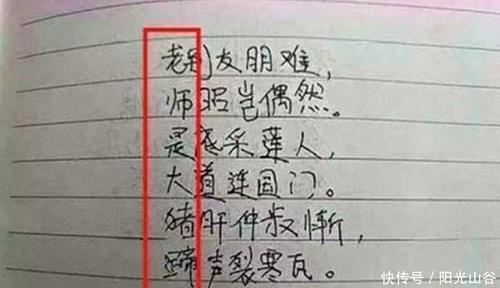 老到友朋难，
师昭岂偶然。
是底采莲人，
大道连国门。
猪肝仲叔惭，
蹄声裂寒瓦。
快传号／阳光山谷